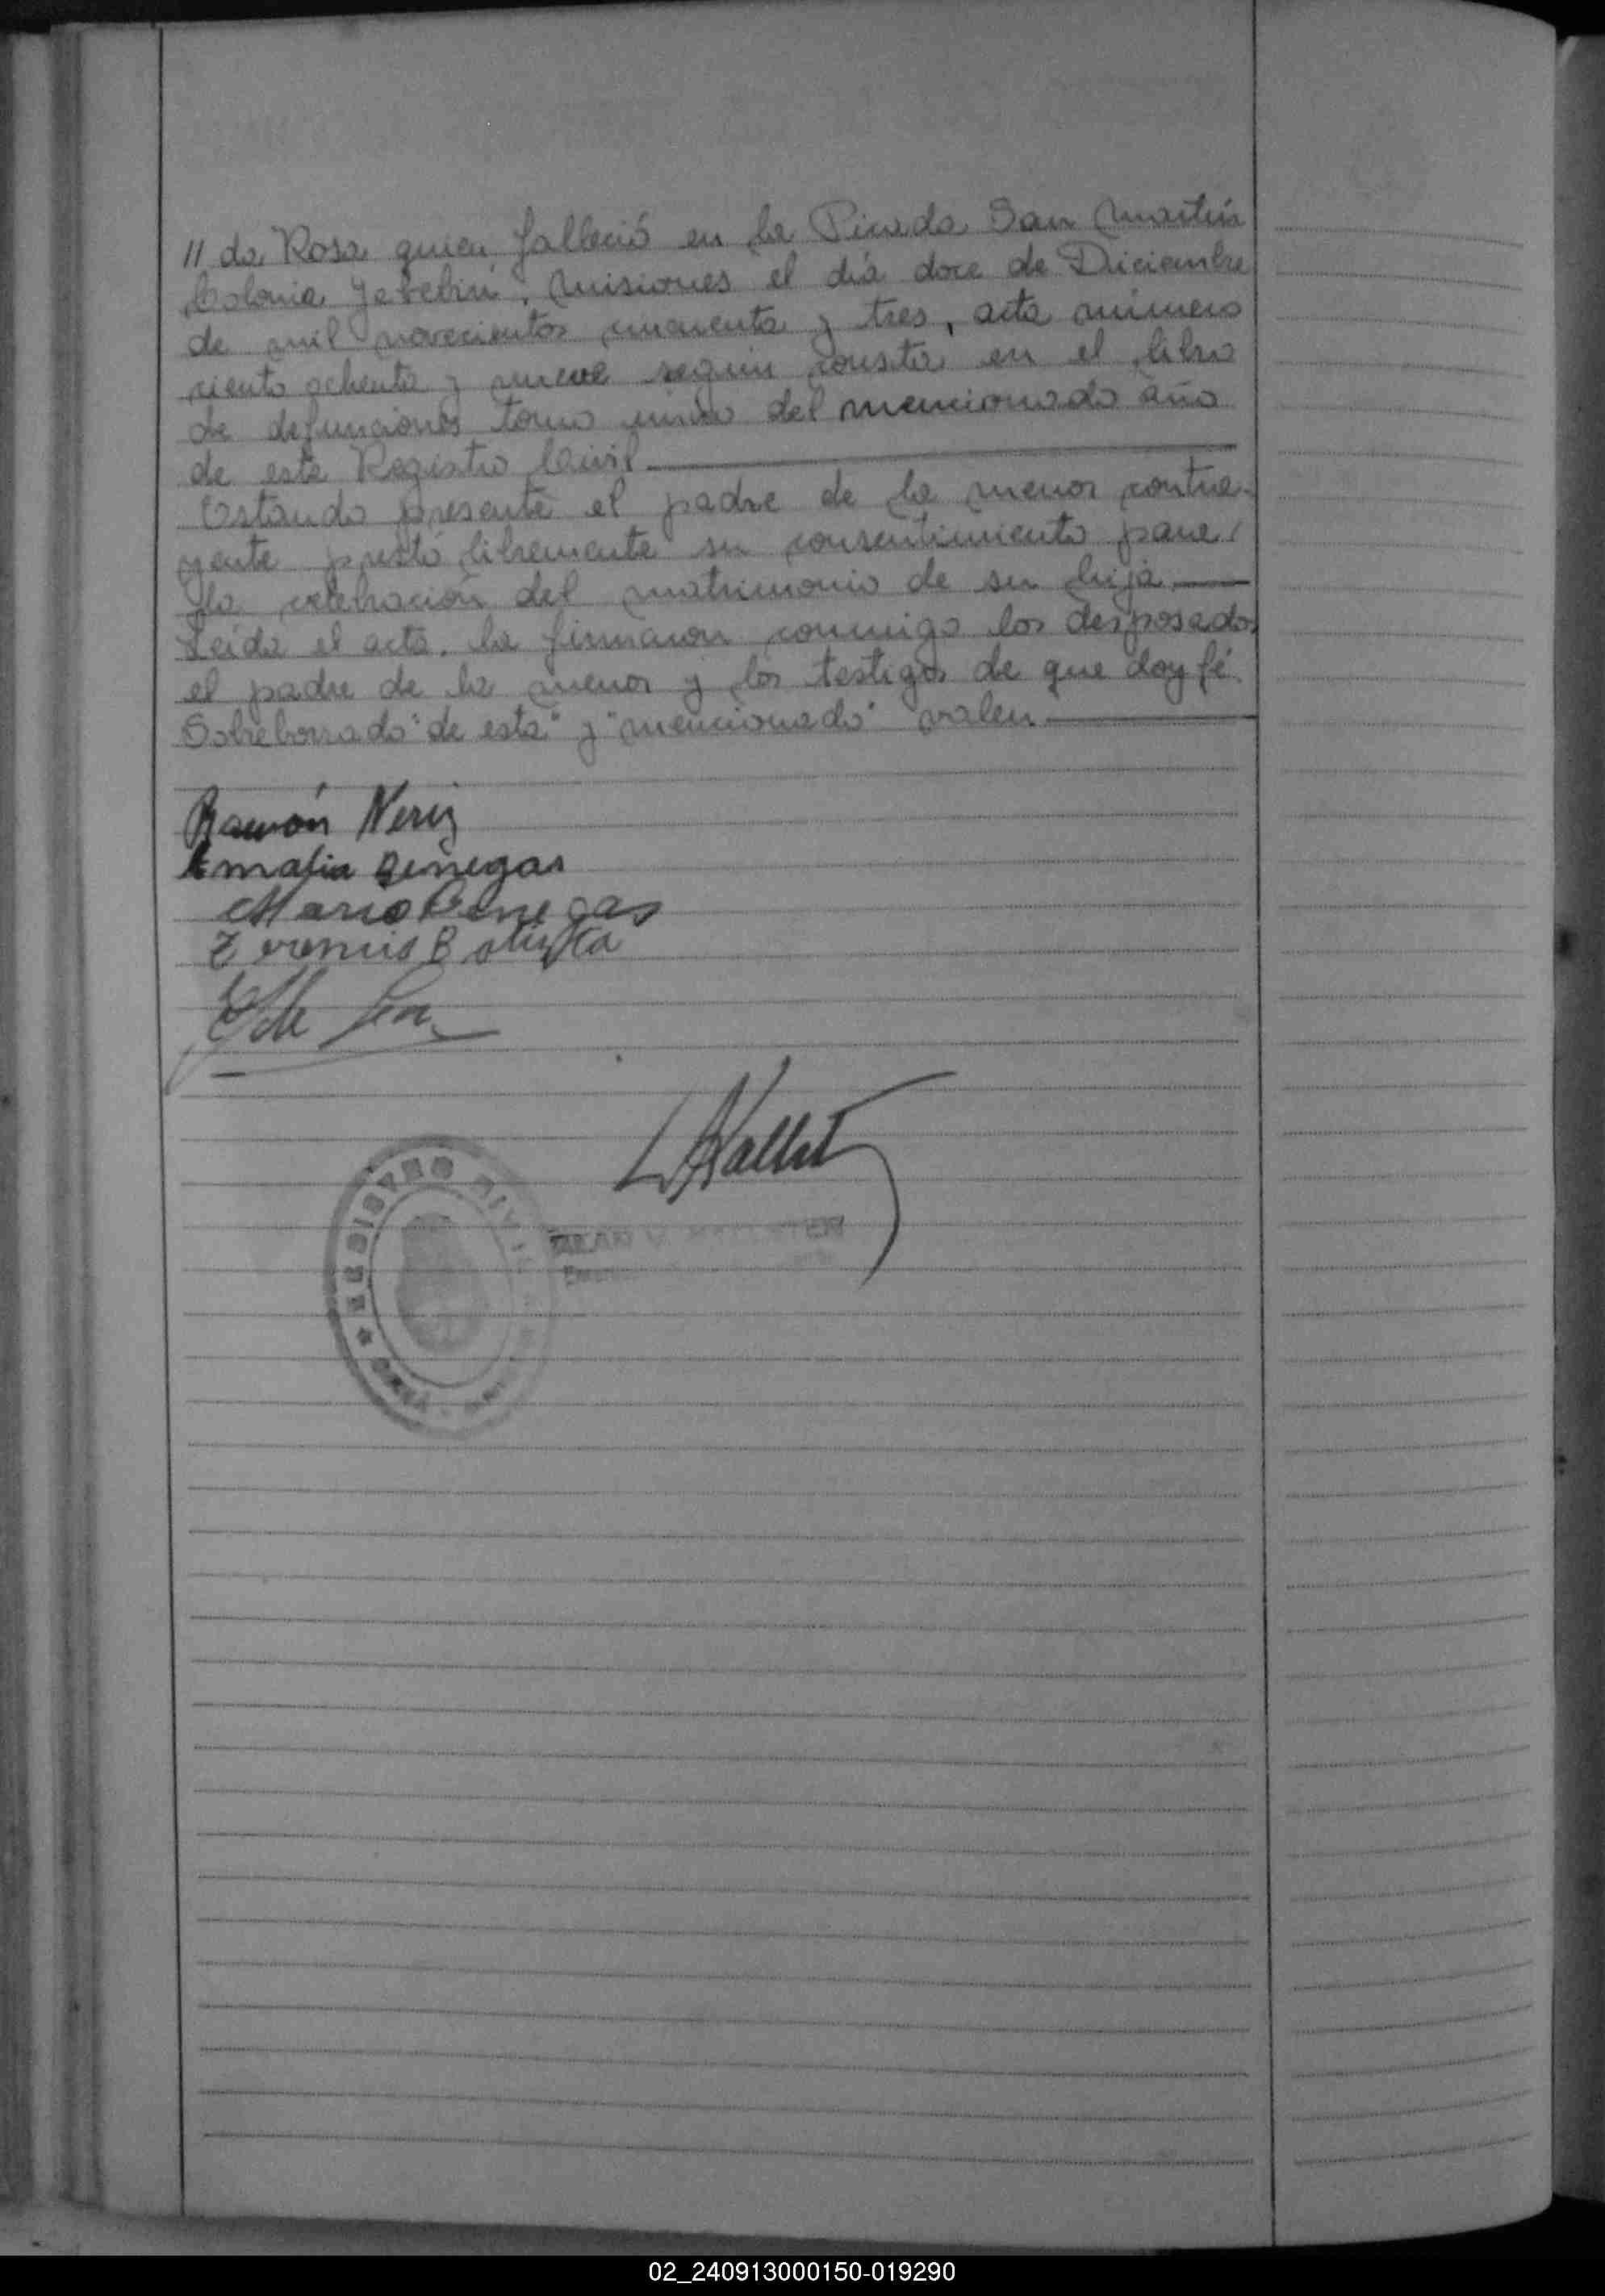 // da Rosa quien falleció en la Picada San Martín
Colonia Yabebirí, Misiones el día doce de Diciembre
de mil novecientos cincuenta y tres, acta número
ciento ochenta y nueve según consta en el libro
de defunciones tomo único del mencionado año
de este Registro Civil.
Estando presente el padre de la menor contra-
yente prestó libremente su consentimiento para
la celebración del matrimonio de su hija.
Leída el acta, la firmaron conmigo los desposados
el padre de la menor y los testigos de que doy fé.
Sobreborrado "de esta" y "mencionado" valen.
Ramón Neris
Amalia Benegas
Mario Benegas
REGISTRO
02_240913000150-019290